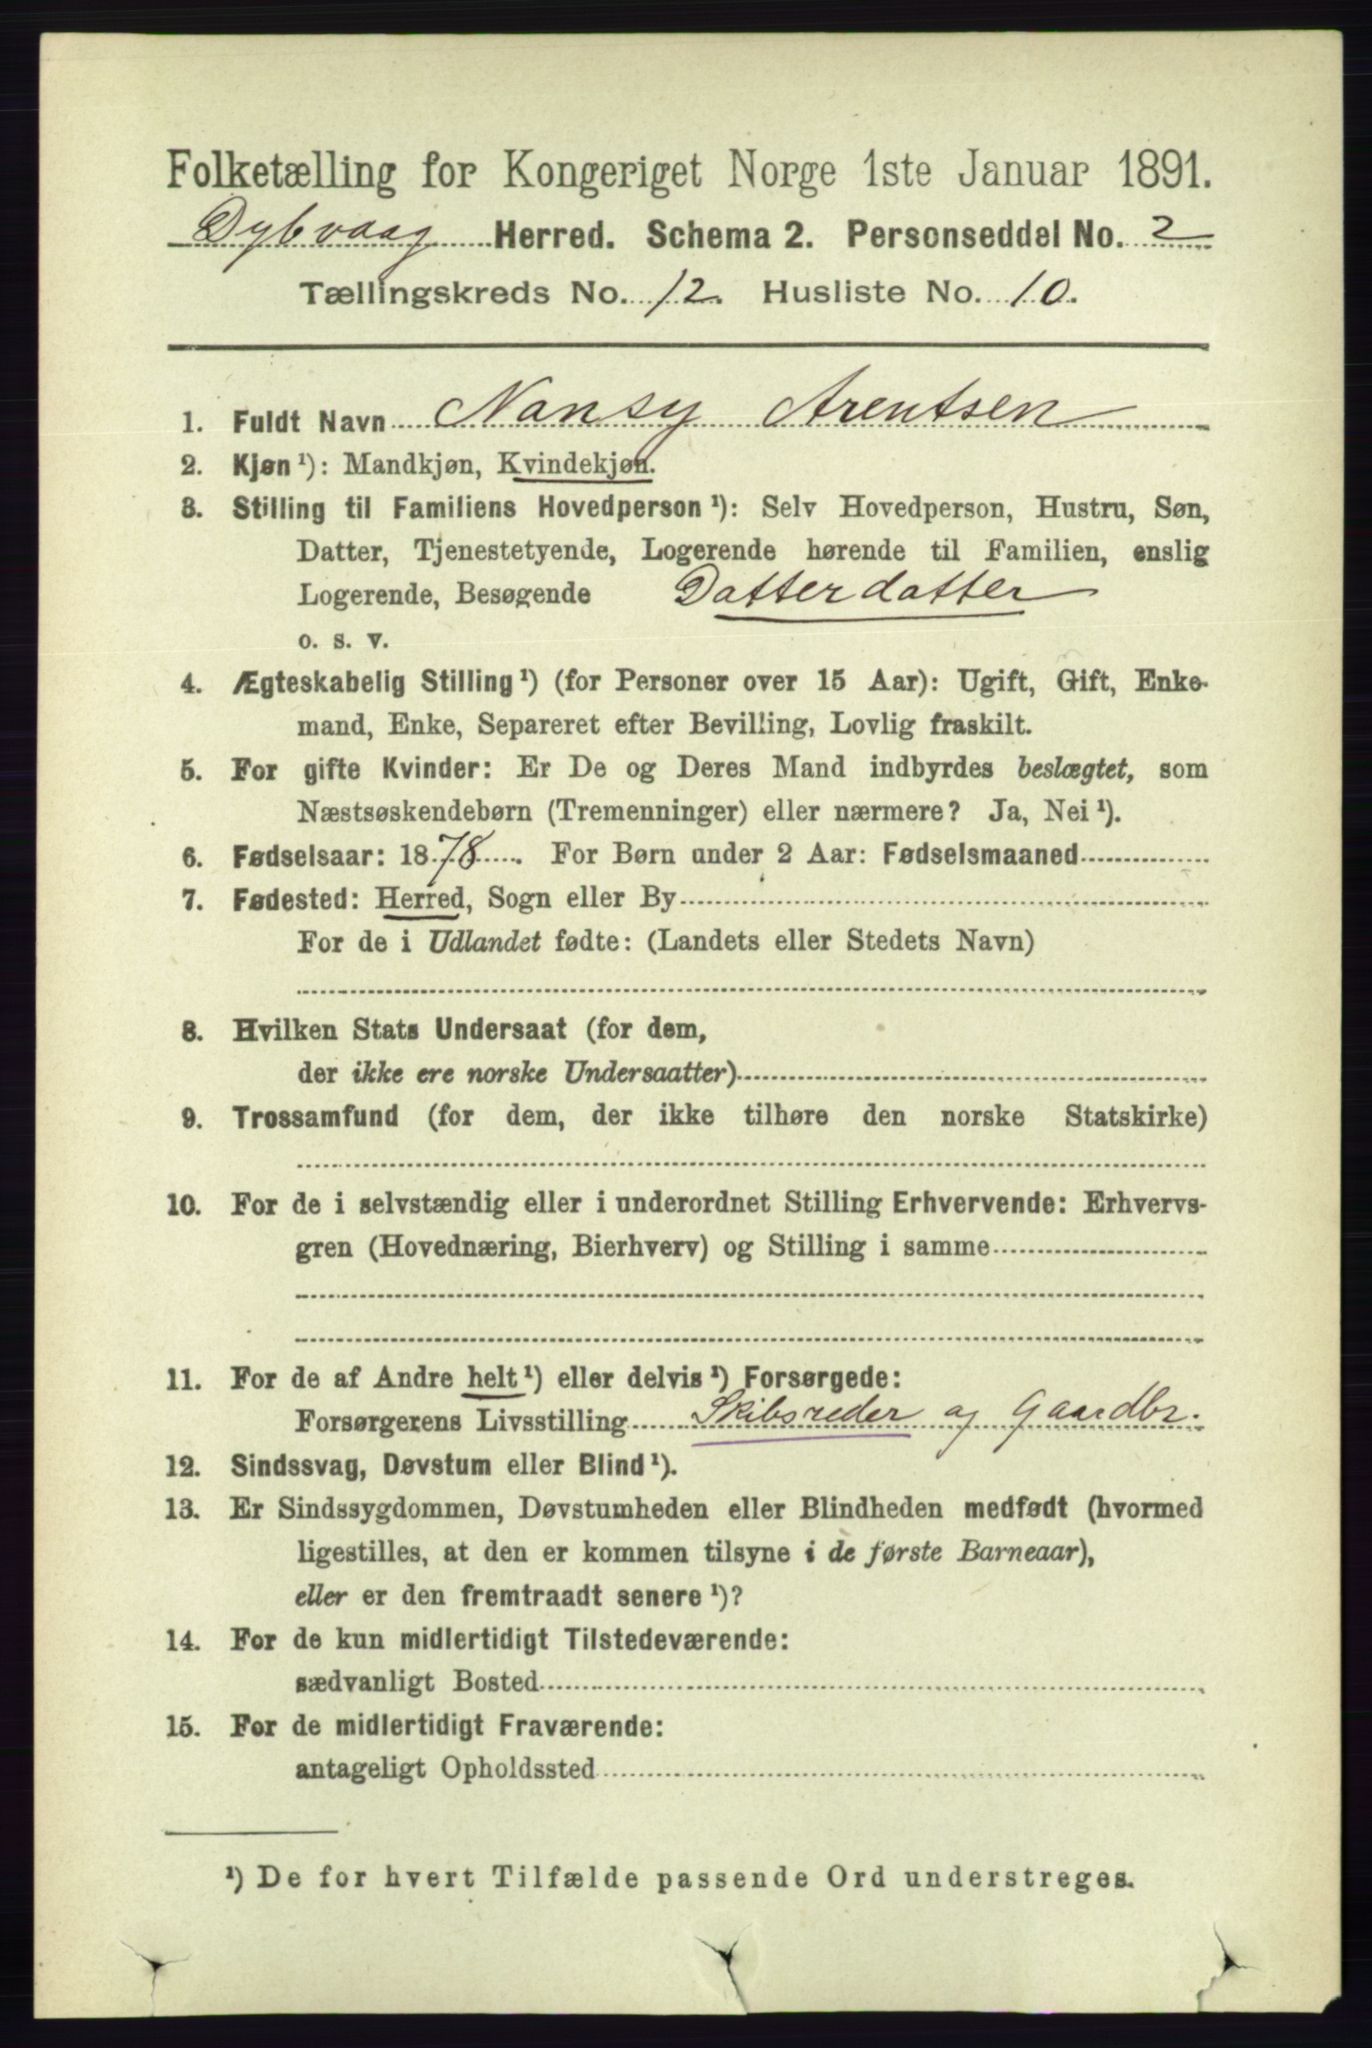 Folketælling for Kongeriget Norge 1ste Januar 1891.
Dybvaag Herred. Schema 2. Personseddel No. 2
Tællingskreds No. 12. Husliste No. 10.
1. Fuldt Navn Nansy Arentsen
2. Kjøn¹): Mandkjøn, Kvindekjøn.
3. Stilling til Familiens Hovedperson¹): Selv Hovedperson, Hustru, Søn,
Datter, Tjenestetyende, Logerende hørende til Familien, enslig
Logerende, Besøgende Datterdatter
o. s. v.
4. Ægteskabelig Stilling¹) (for Personer over 15 Aar): Ugift, Gift, Enke-
mand, Enke, Separeret efter Bevilling, Lovlig fraskilt.
5. For gifte Kvinder: Er De og Deres Mand indbyrdes beslægtet, som
Næstsøskendebørn (Tremenninger) eller nærmere? Ja, Nei¹).
6. Fødselsaar: 1878. For Børn under 2 Aar: Fødselsmaaned
7. Fødested: Herred, Sogn eller By
For de i Udlandet fødte: (Landets eller Stedets Navn)
8. Hvilken Stats Undersaat (for dem,
der ikke ere norske Undersaatter)
9. Trossamfund (for dem, der ikke tilhøre den norske Statskirke)
10. For de i selvstændig eller i underordnet Stilling Erhvervende: Erhvervs-
gren (Hovednæring, Bierhverv) og Stilling i samme
11. For de af Andre helt¹) eller delvis¹) Forsørgede:
Forsørgerens Livsstilling Skibsreder og Gaardbr.
12. Sindssvag, Døvstum eller Blind¹).
13. Er Sindssygdommen, Døvstumheden eller Blindheden medfødt (hvormed
ligestilles, at den er kommen tilsyne i de første Barneaar),
eller er den fremtraadt senere¹)?
14. For de kun midlertidigt Tilstedeværende:
sædvanligt Bosted
15. For de midlertidigt Fraværende:
antageligt Opholdssted
¹) De for hvert Tilfælde passende Ord understreges.